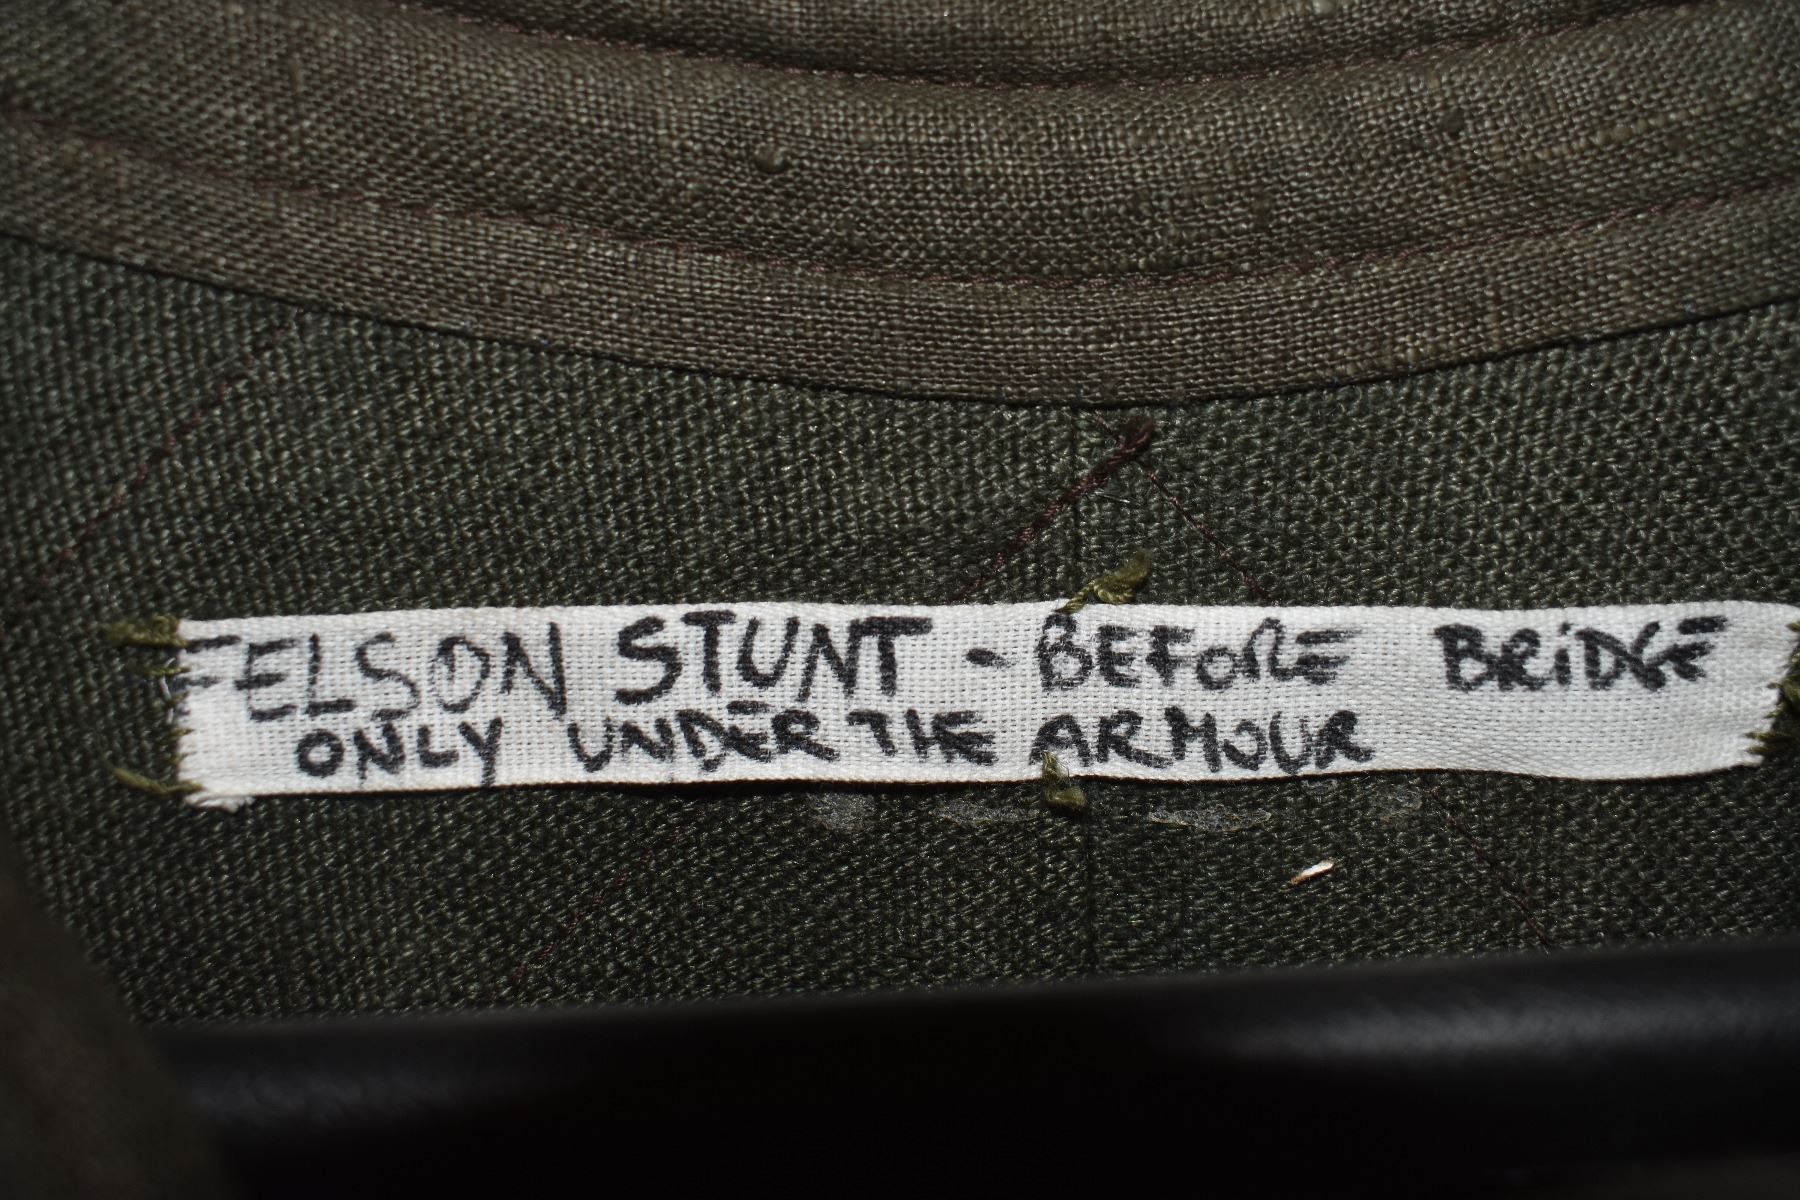 FELSON STUNT - BEFORE BRiDGE
ONLY UNDER THE ARMOUR